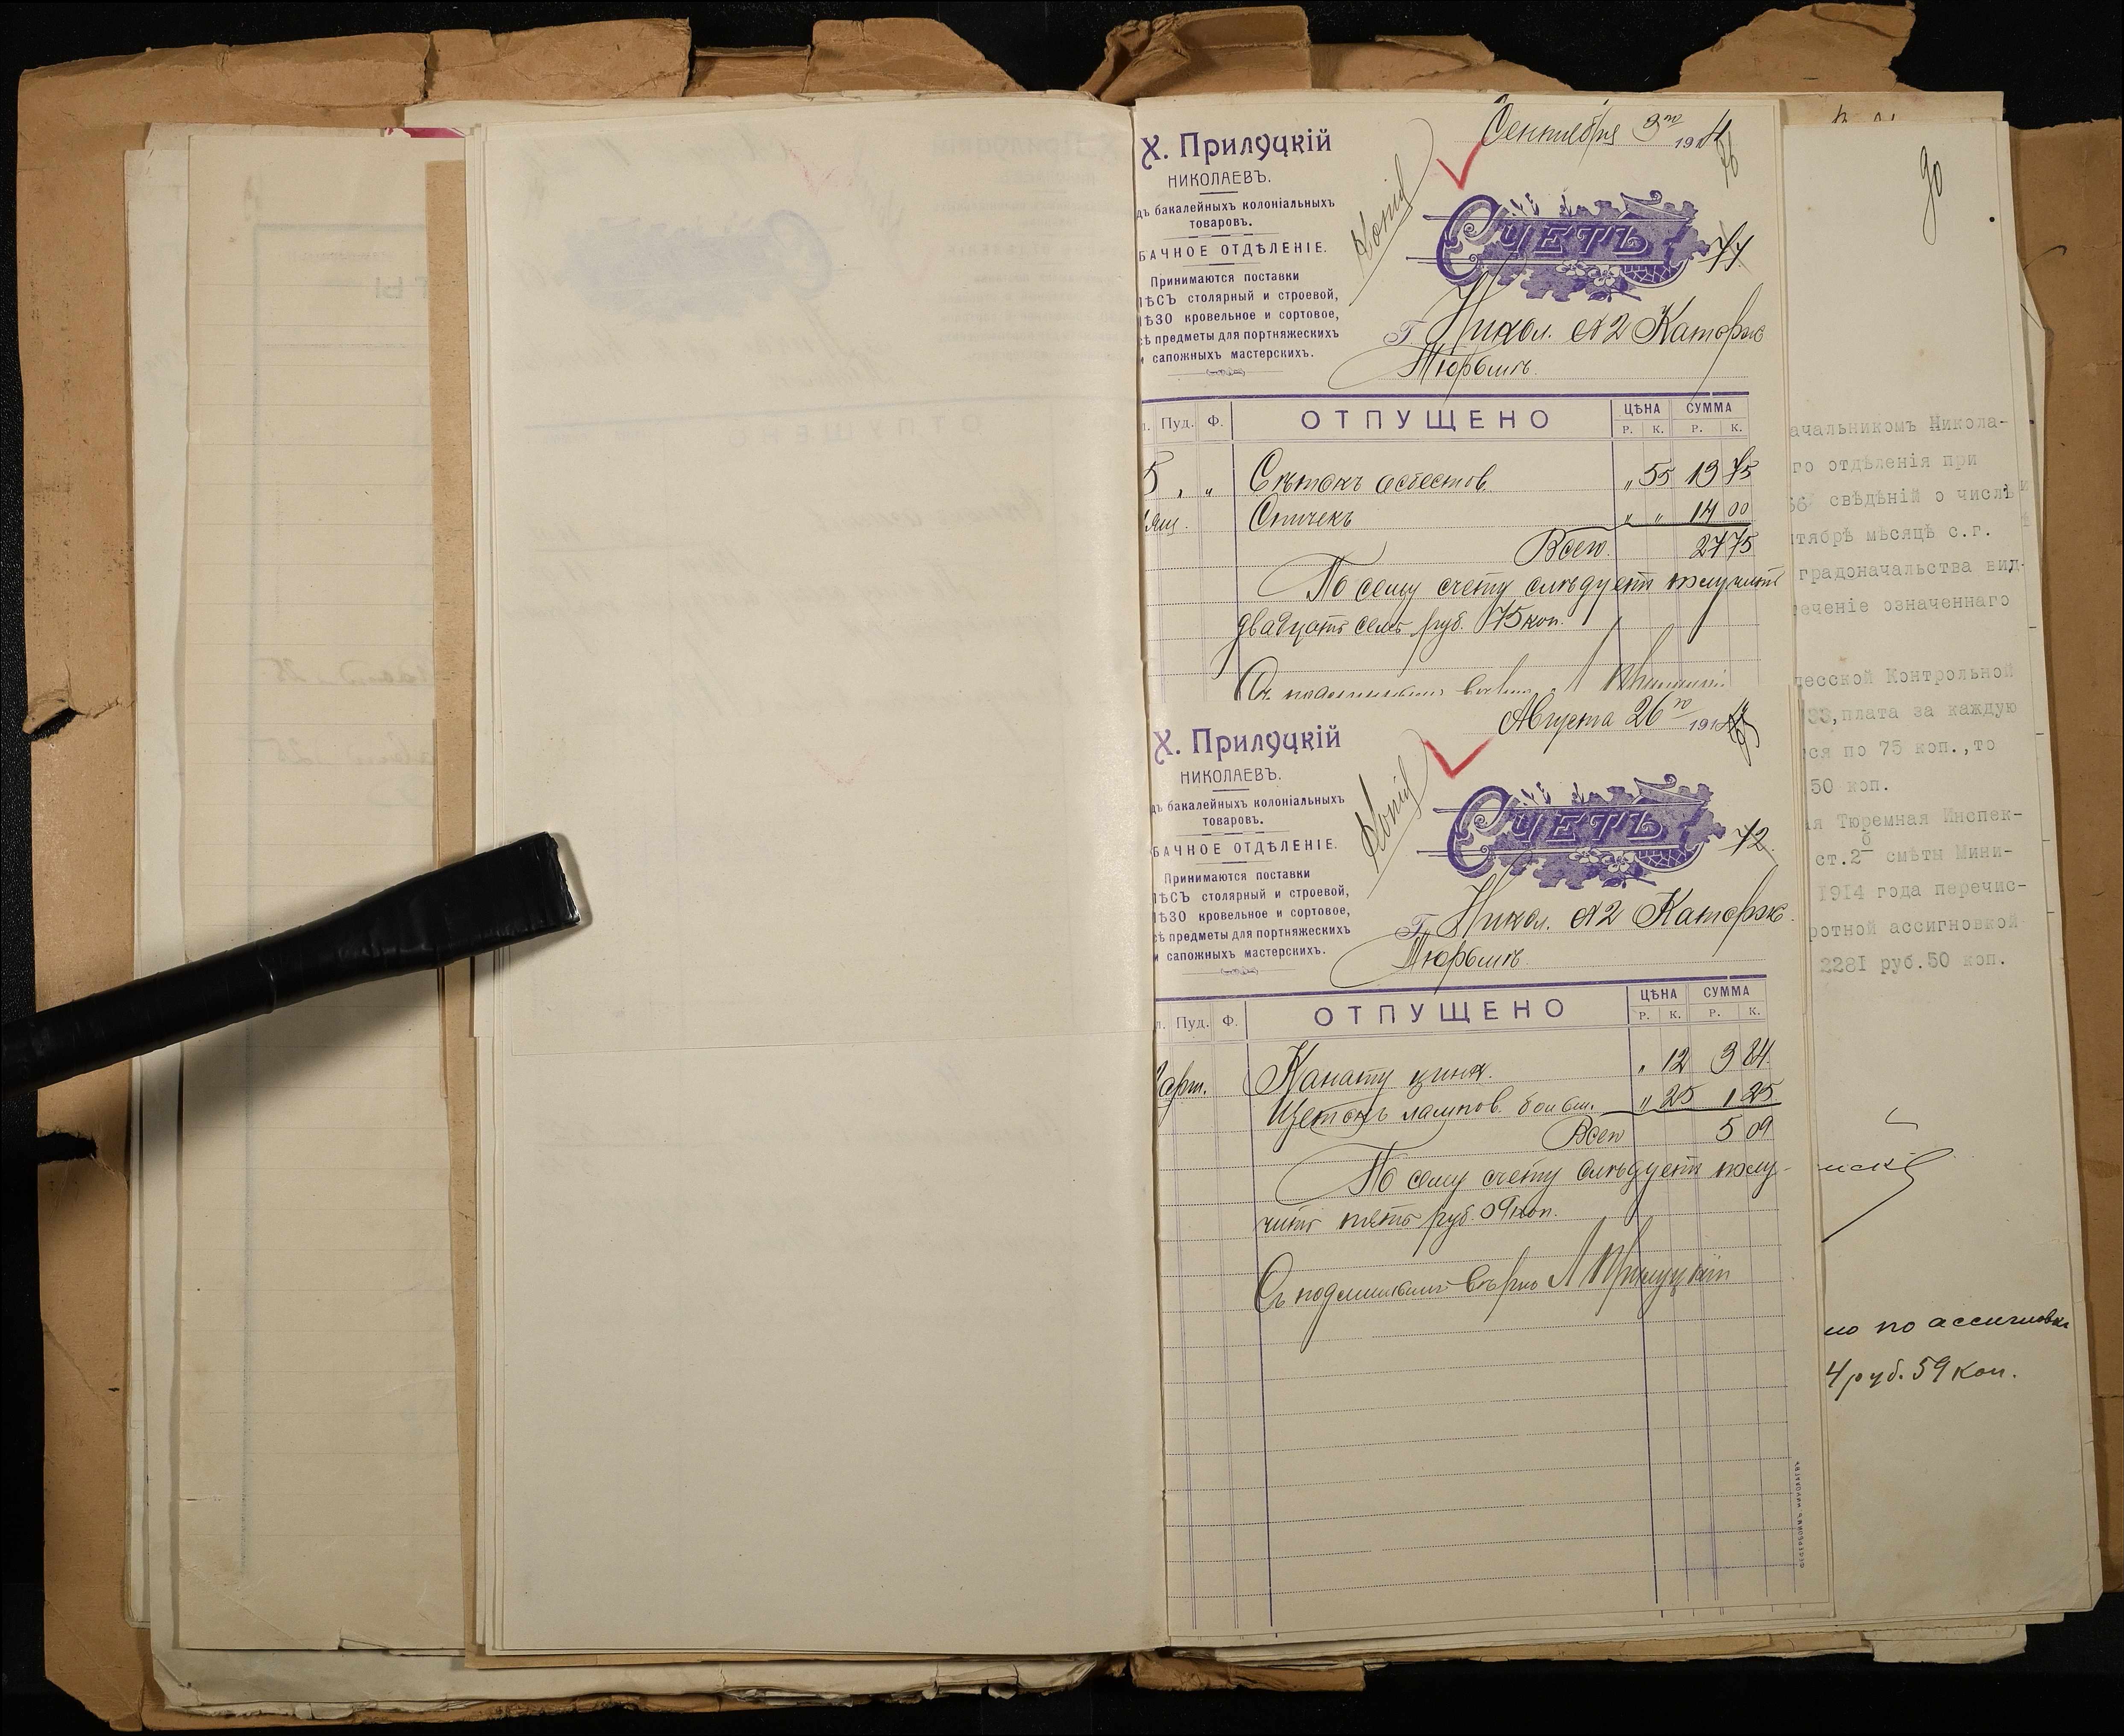 Сентября 3го 1914
Х. Прилуцкій
НИКОЛАЕВЪ.
дъ бакалейныхъ колоніальныхъ
товаровъ.
БАЧНОЕ ОТДѢЛЕНІЕ.
Принимаются поставки
ѢСЪ столярный и строевой,
ѢЗО кровельное и сортовое,
ѣ предметы для портняжескихъ
и сапожныхъ мастерскихъ.
Копія
СЧЕТЪ
Г. Никол. № 2 Каторж
Тюрьмѣ.
Пуд. Ф. ОТПУЩЕНО ЦѢНА СУММА
Р. К. Р. К.
5 „ „ Сѣтокъ асбестов. „ 55 13 75
ящ. Спичекъ „ „ 14 00
Всего 27 75
По сему счету слѣдуетъ получить
двадцать семь руб. 75 коп.
Съ подлиннымъ вѣрно
Августа 26го 191
Х. Прилуцкій
НИКОЛАЕВЪ.
дъ бакалейныхъ колоніальныхъ
товаровъ.
БАЧНОЕ ОТДѢЛЕНІЕ.
Принимаются поставки
ѢСЪ столярный и строевой,
ѢЗО кровельное и сортовое,
ѣ предметы для портняжескихъ
и сапожныхъ мастерскихъ.
Копія
СЧЕТЪ
72.
Г. Никол. № 2 Каторж.
Тюрьмѣ.
Пуд. Ф. ОТПУЩЕНО ЦѢНА СУММА
Р. К. Р. К.
арш. Канату цинк. „ 12 3 84
Щетокъ лампов. больш. „ 25 1 25
Всего 5 09
По сему счету слѣдуетъ полу-
чить пять руб. 09 коп.
Съ подлиннымъ вѣрно Л Прилуцкій
90
ачальникомъ Никола-
го отдѣленія при
56 свѣдѣній о числѣ
тябрѣ мѣсяцѣ с.г.
градоначальства вид-
еченіе означеннаго
десской Контрольной
33, плата за каждую
ся по 75 коп., то
50 коп.
я Тюремная Инспек-
ст.2б смѣты Мини-
1914 года перечис-
ротной ассигновкой
2281 руб.50 коп.
но по ассигновкѣ
4 руб. 59 коп.